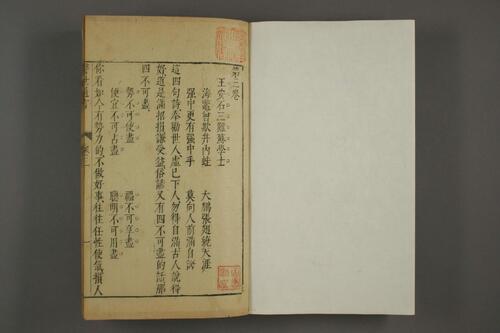 第三卷
王安石三難蘇學士
海鱉曾欺井內蛙　大鵬張翅繞天涯
強中更有強中手　莫向人前滿自誇
這四句詩奉勸世人虛己下人勿得自滿古人說得
好道是滿招損謙受益俗諺又有四不可盡的話那
四不可盡
勢不可使盡　福不可享盡
便宜不可占盡　聰明不可用盡
你看如今有勢力的不做好事往往任性使氣損人